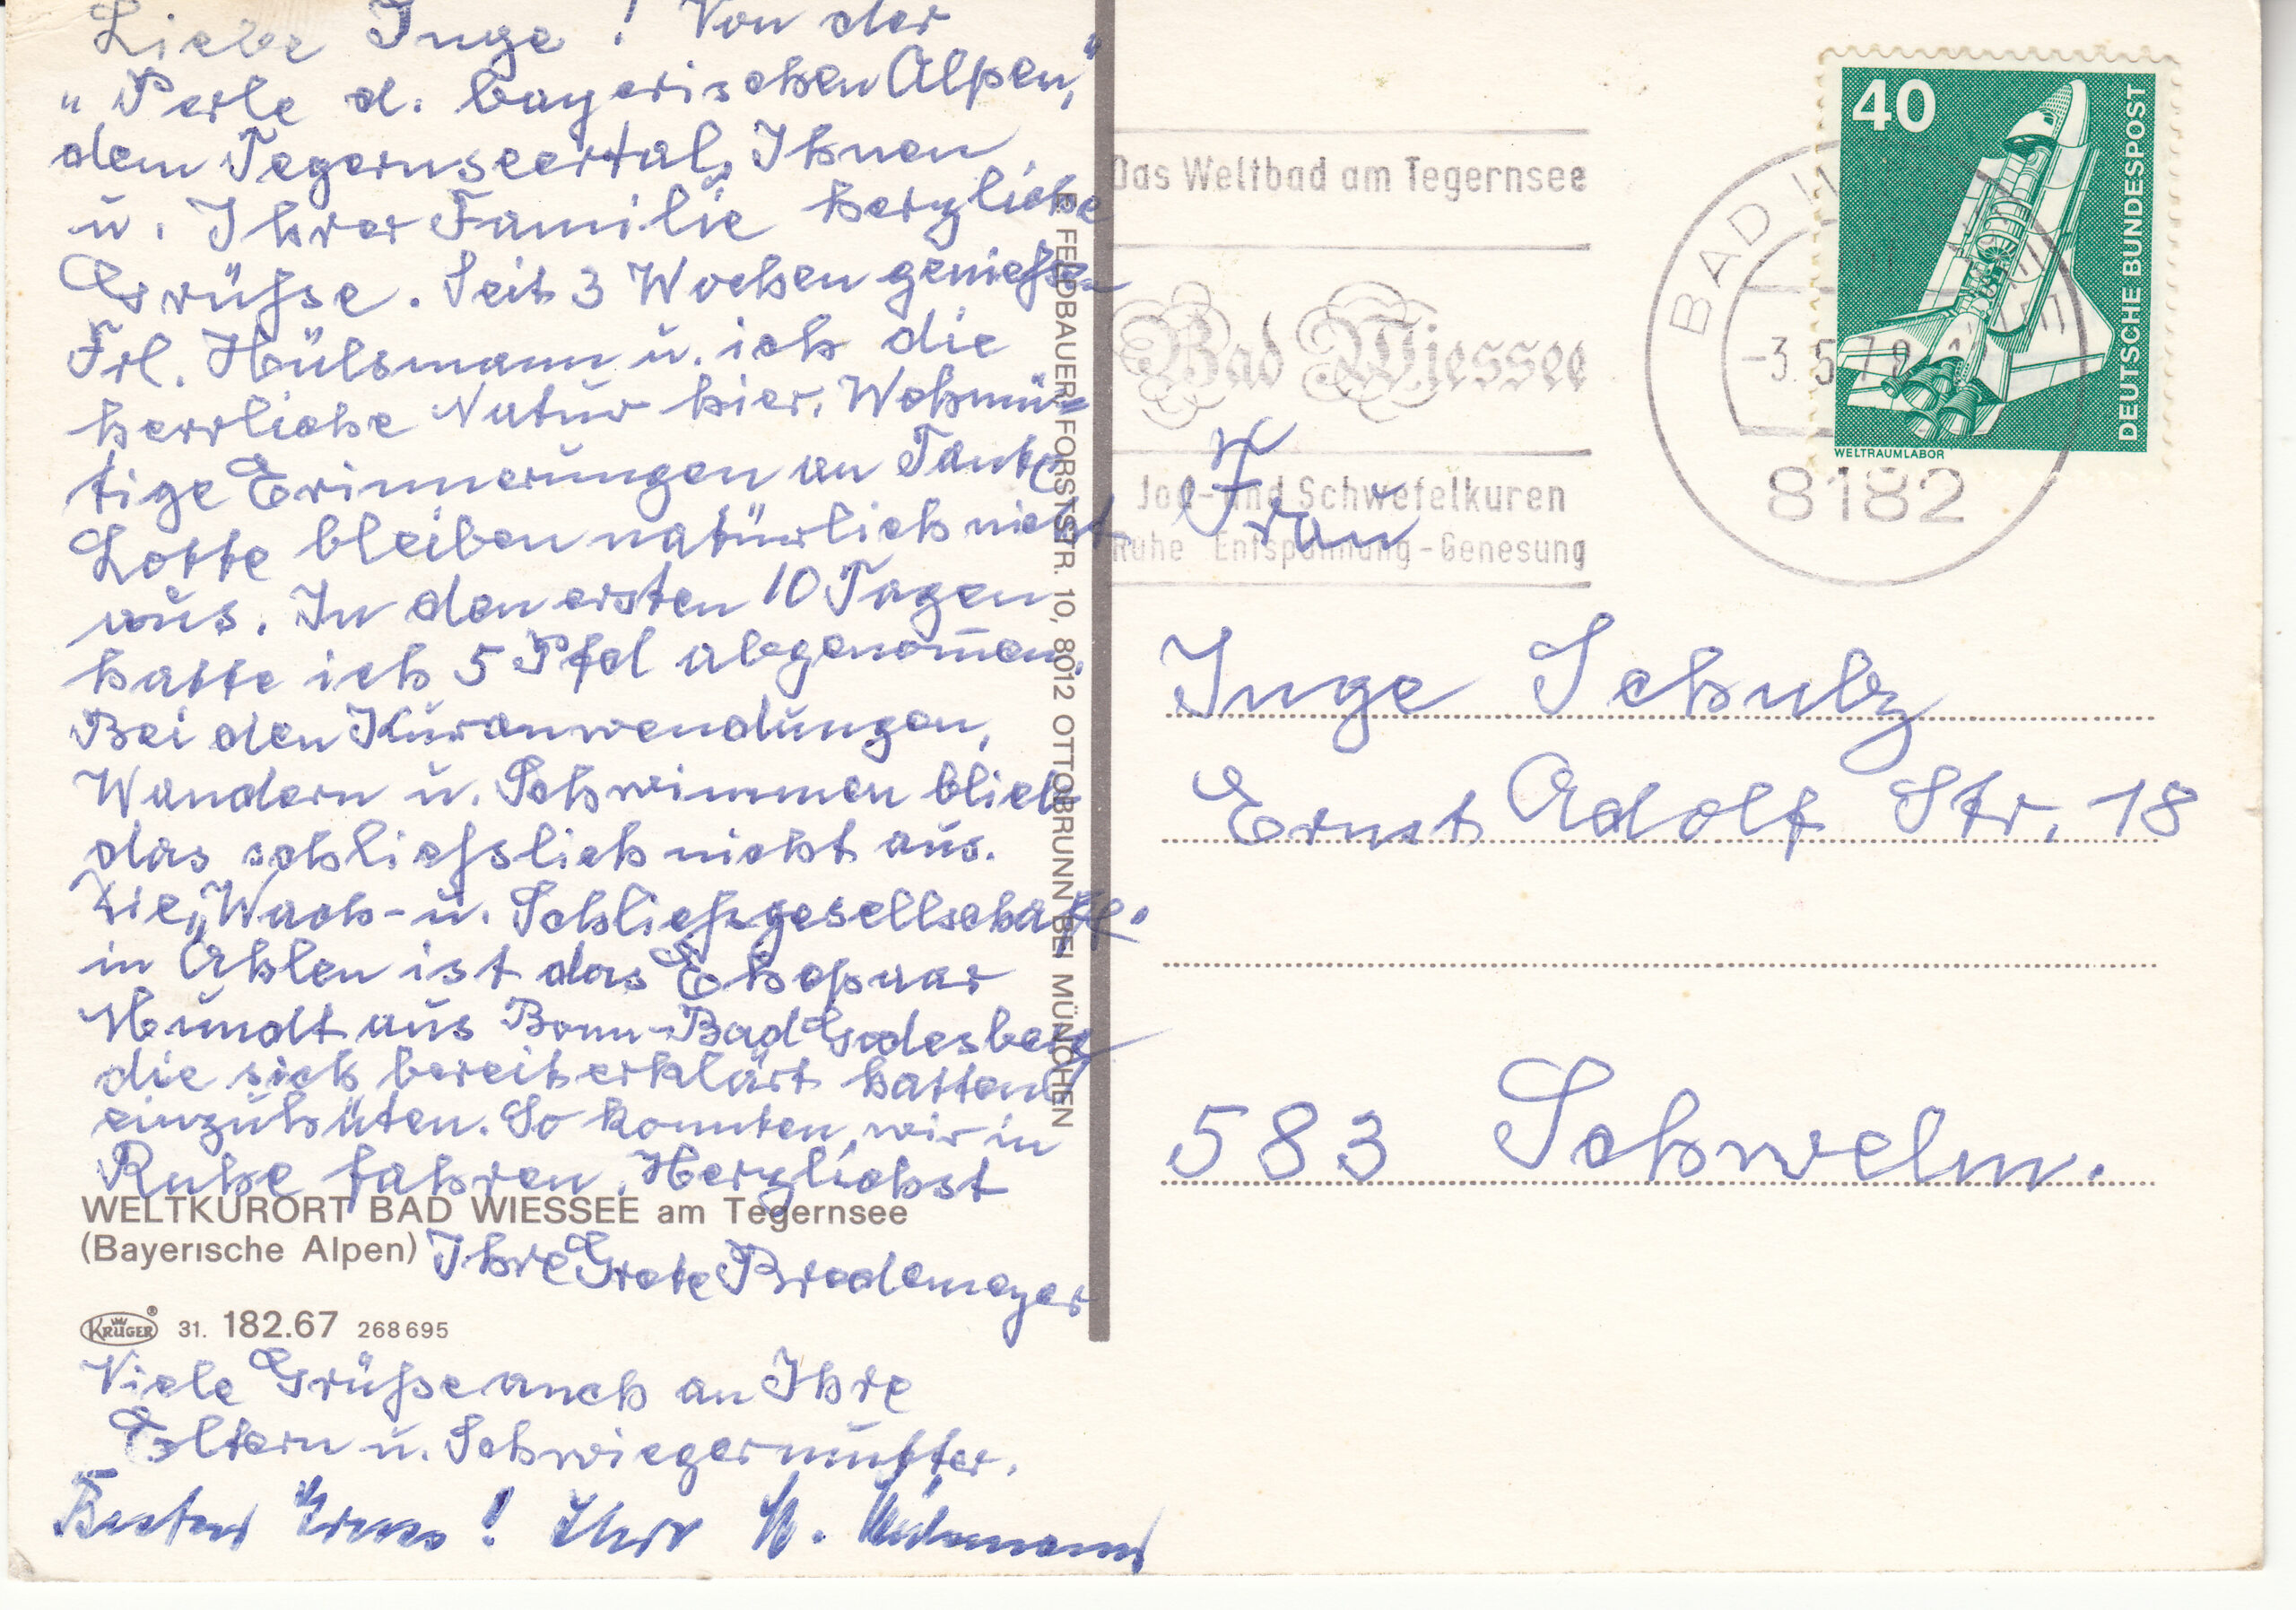 Liebe Inge! Von der
„Perle d. bayerischen Alpen,"
dem Tegernseertal, Ihnen
u. Ihrer Familie herzliche
Grüße. Seit 3 Wochen genießen
Frl. Hülsmann u. ich die
herrliche Natur hier. Wehmü-
tige Erinnerungen an Tante
Lotte bleiben natürlich nicht
aus. In den ersten 10 Tagen
hatte ich 5 Pfd abgenom̄en.
Bei den Kuranwendungen,
Wandern u. Schwimmen blieb
das schließlich nicht aus.
Die „Wach- u. Schließgesellschaft"
in Ahlen ist das Ehepaar
Mundt aus Bonn-Bad Godesberg
die sich bereit erklärt hatten
einzuhüten. So konnten wir in
Ruhe fahren. Herzlichst
WELTKURORT BAD WIESSEE am Tegernsee
(Bayerische Alpen)
Ihre Grete Bredemeyer
KRÜGER® 31. 182.67 268695
Viele Grüße auch an Ihre
Eltern u. Schwiegermutter.
Besten Gruss! Ihre H. Hülsmann
E. FELDBAUER, FORSTSTR. 10, 8012 OTTOBRUNN BEI MÜNCHEN
Das Weltbad am Tegernsee
Bad Wiessee
Jod- und Schwefelkuren
Ruhe Entspannung - Genesung
BAD
-3.5.79
8182
40
DEUTSCHE BUNDESPOST
WELTRAUMLABOR
Frau
Inge Schulz
Ernst Adolf Str. 18
583 Schwelm.